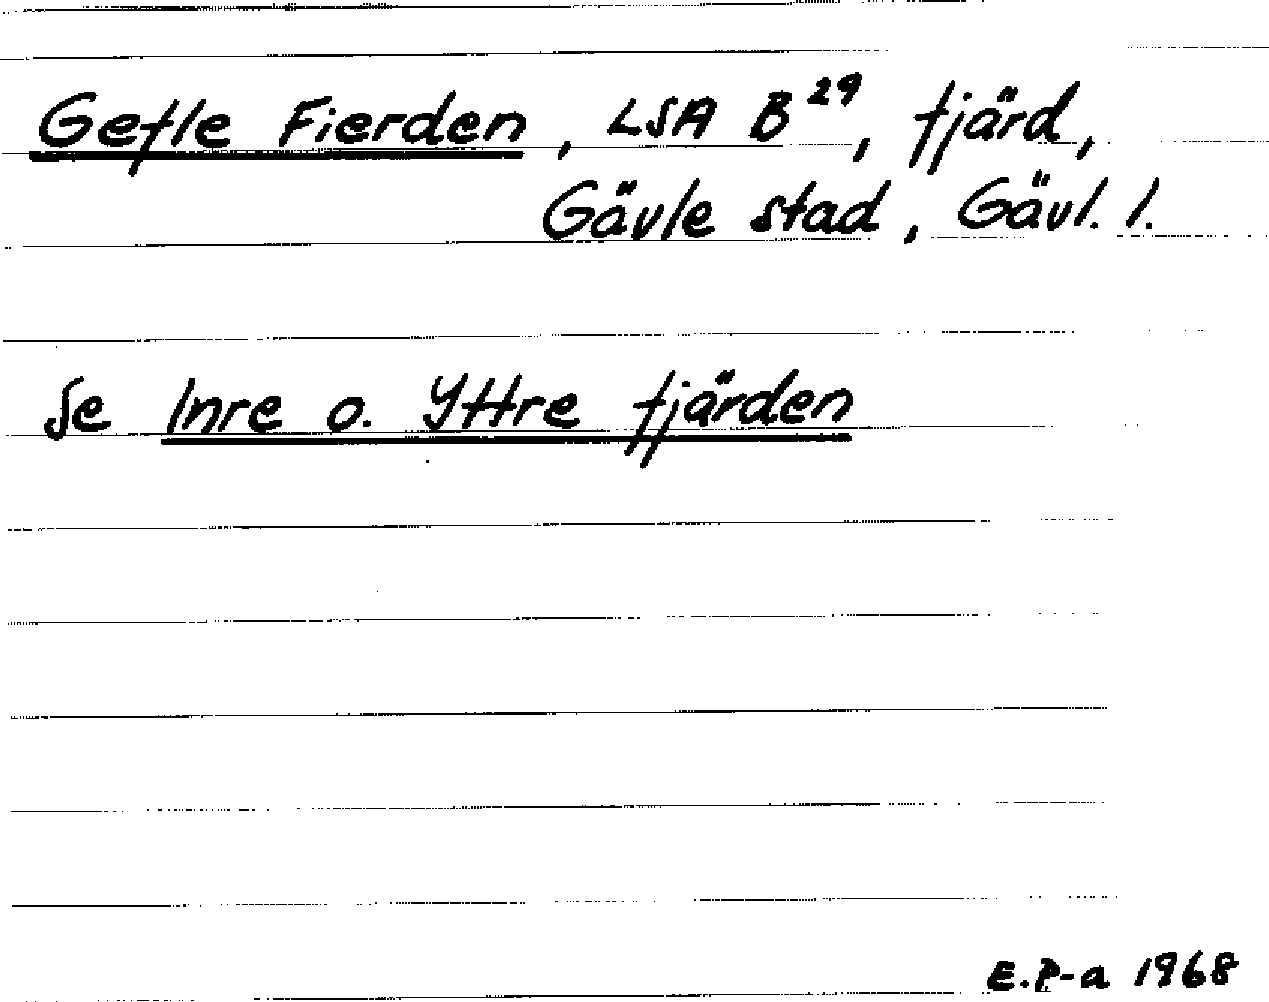 Gefle Fierden, LSA B²⁹, fjärd,
Gävle stad, Gävl. l.
Se Inre o. Yttre fjärden
E.P-a 1968